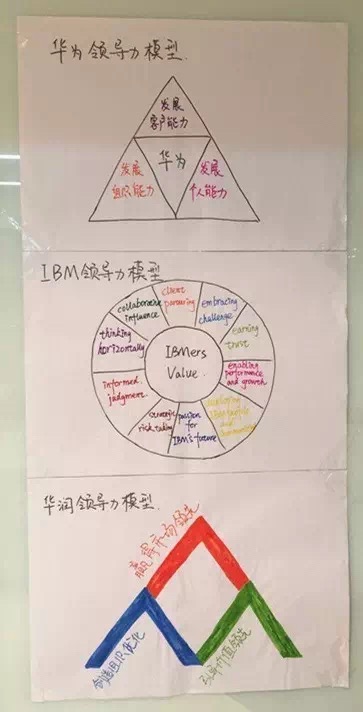 华为领导力模型.
发展
客户能力
华为
发展
组织能力
发展
个人能力
IBM领导力模型
IBMers
Value.
client
partnering
embracing
challenge
earning
trust
enabling
performance
and growth
passion
for
IBM's future
strategic
risk taking
informed
judgment.
thinking
horizontally
collaborative
influence
华润领导力模型.
赢得市场领先
创造组织优化
引导价值领先